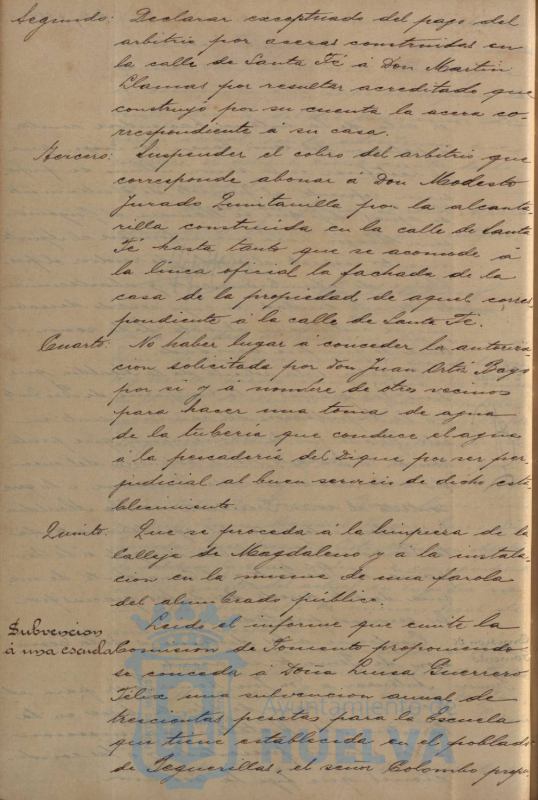 Segundo: Declarar exceptuado del pago del
arbitrio por aceras construidas en
la calle de Santa Fé á Don Martin
Llamas por resultar acreditado que
construyó por su cuenta la acera co-
rrespondiente á su casa.
Tercero: Suspender el cobro del arbitrio que
corresponde abonar á Don Modesto
Jurado Quintanilla por la alcanta-
rilla construida en la calle de Santa
Fé hasta tanto que se acomode á
la linea oficial la fachada de la
casa de la propiedad de aquel corres-
pondiente á la calle de Santa Fé.
Cuarto: No haber lugar á conceder la autoriza-
cion solicitada por Don Juan Ortiz Bago
por si y á nombre de otros vecinos
para hacer una toma de agua
de la tuberia que conduce el agua
á la pescaderia del Dique por ser per-
judicial al buen servicio de dicho esta-
blecimiento.
Quinto: Que se proceda á la limpieza de la
Calleja de Magdaleno y á la instala-
cion en la misma de una farola
del alumbrado público.
Subvencion
á una escuela
Leido el informe que emite la
Comision de Fomento proponiendo
se conceda á Doña Luisa Guerrero
Felix una subvencion anual de
trescientas pesetas para la Escuela
que tiene establecida en el poblado
de Peguerillas, el señor Colombo propu-
Ayuntamiento de
HUELVA